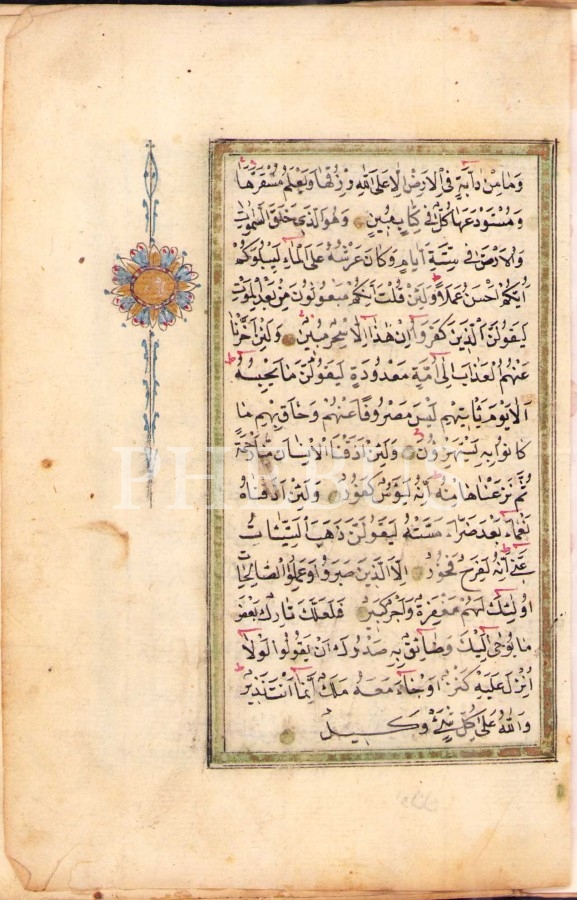 وَمَا مِنْ دَآبَّةٍ فِي الْاَرْضِ اِلَّا عَلَى اللّٰهِ رِزْقُهَا وَيَعْلَمُ مُسْتَقَرَّهَا
وَمُسْتَوْدَعَهَا كُلٌّ فِي كِتَابٍ مُبِينٍ وَهُوَ الَّذِي خَلَقَ السَّمٰوَاتِ
وَالْاَرْضَ فِي سِتَّةِ اَيَّامٍ وَكَانَ عَرْشُهُ عَلَى الْمَآءِ لِيَبْلُوَكُمْ
اَيُّكُمْ اَحْسَنُ عَمَلًا وَلَئِنْ قُلْتَ اِنَّكُمْ مَبْعُوثُونَ مِنْ بَعْدِ الْمَوْتِ
لَيَقُولَنَّ الَّذِينَ كَفَرُوٓا اِنْ هٰذَآ اِلَّا سِحْرٌ مُبِينٌ وَلَئِنْ اَخَّرْنَا
عَنْهُمُ الْعَذَابَ اِلٰٓى اُمَّةٍ مَعْدُودَةٍ لَيَقُولُنَّ مَا يَحْبِسُهُ
اَلَا يَوْمَ يَاْتِيهِمْ لَيْسَ مَصْرُوفًا عَنْهُمْ وَحَاقَ بِهِمْ مَا
كَانُوا بِهِ يَسْتَهْزِؤُنَ وَلَئِنْ اَذَقْنَا الْاِنْسَانَ مِنَّا رَحْمَةً
ثُمَّ نَزَعْنَاهَا مِنْهُ اِنَّهُ لَيَؤُسٌ كَفُورٌ وَلَئِنْ اَذَقْنَاهُ
نَعْمَآءَ بَعْدَ ضَرَّآءَ مَسَّتْهُ لَيَقُولَنَّ ذَهَبَ السَّيِّئَاتُ
عَنِّي اِنَّهُ لَفَرِحٌ فَخُورٌ اِلَّا الَّذِينَ صَبَرُوا وَعَمِلُوا الصَّالِحَاتِ
اُولٰٓئِكَ لَهُمْ مَغْفِرَةٌ وَاَجْرٌ كَبِيرٌ فَلَعَلَّكَ تَارِكٌ بَعْضَ
مَا يُوحٰٓى اِلَيْكَ وَضَآئِقٌ بِهِ صَدْرُكَ اَنْ يَقُولُوا لَوْلَآ
اُنْزِلَ عَلَيْهِ كَنْزٌ اَوْ جَآءَ مَعَهُ مَلَكٌ اِنَّمَآ اَنْتَ نَذِيرٌ
وَاللّٰهُ عَلٰى كُلِّ شَيْءٍ وَكِيلٌ
PHEBUS